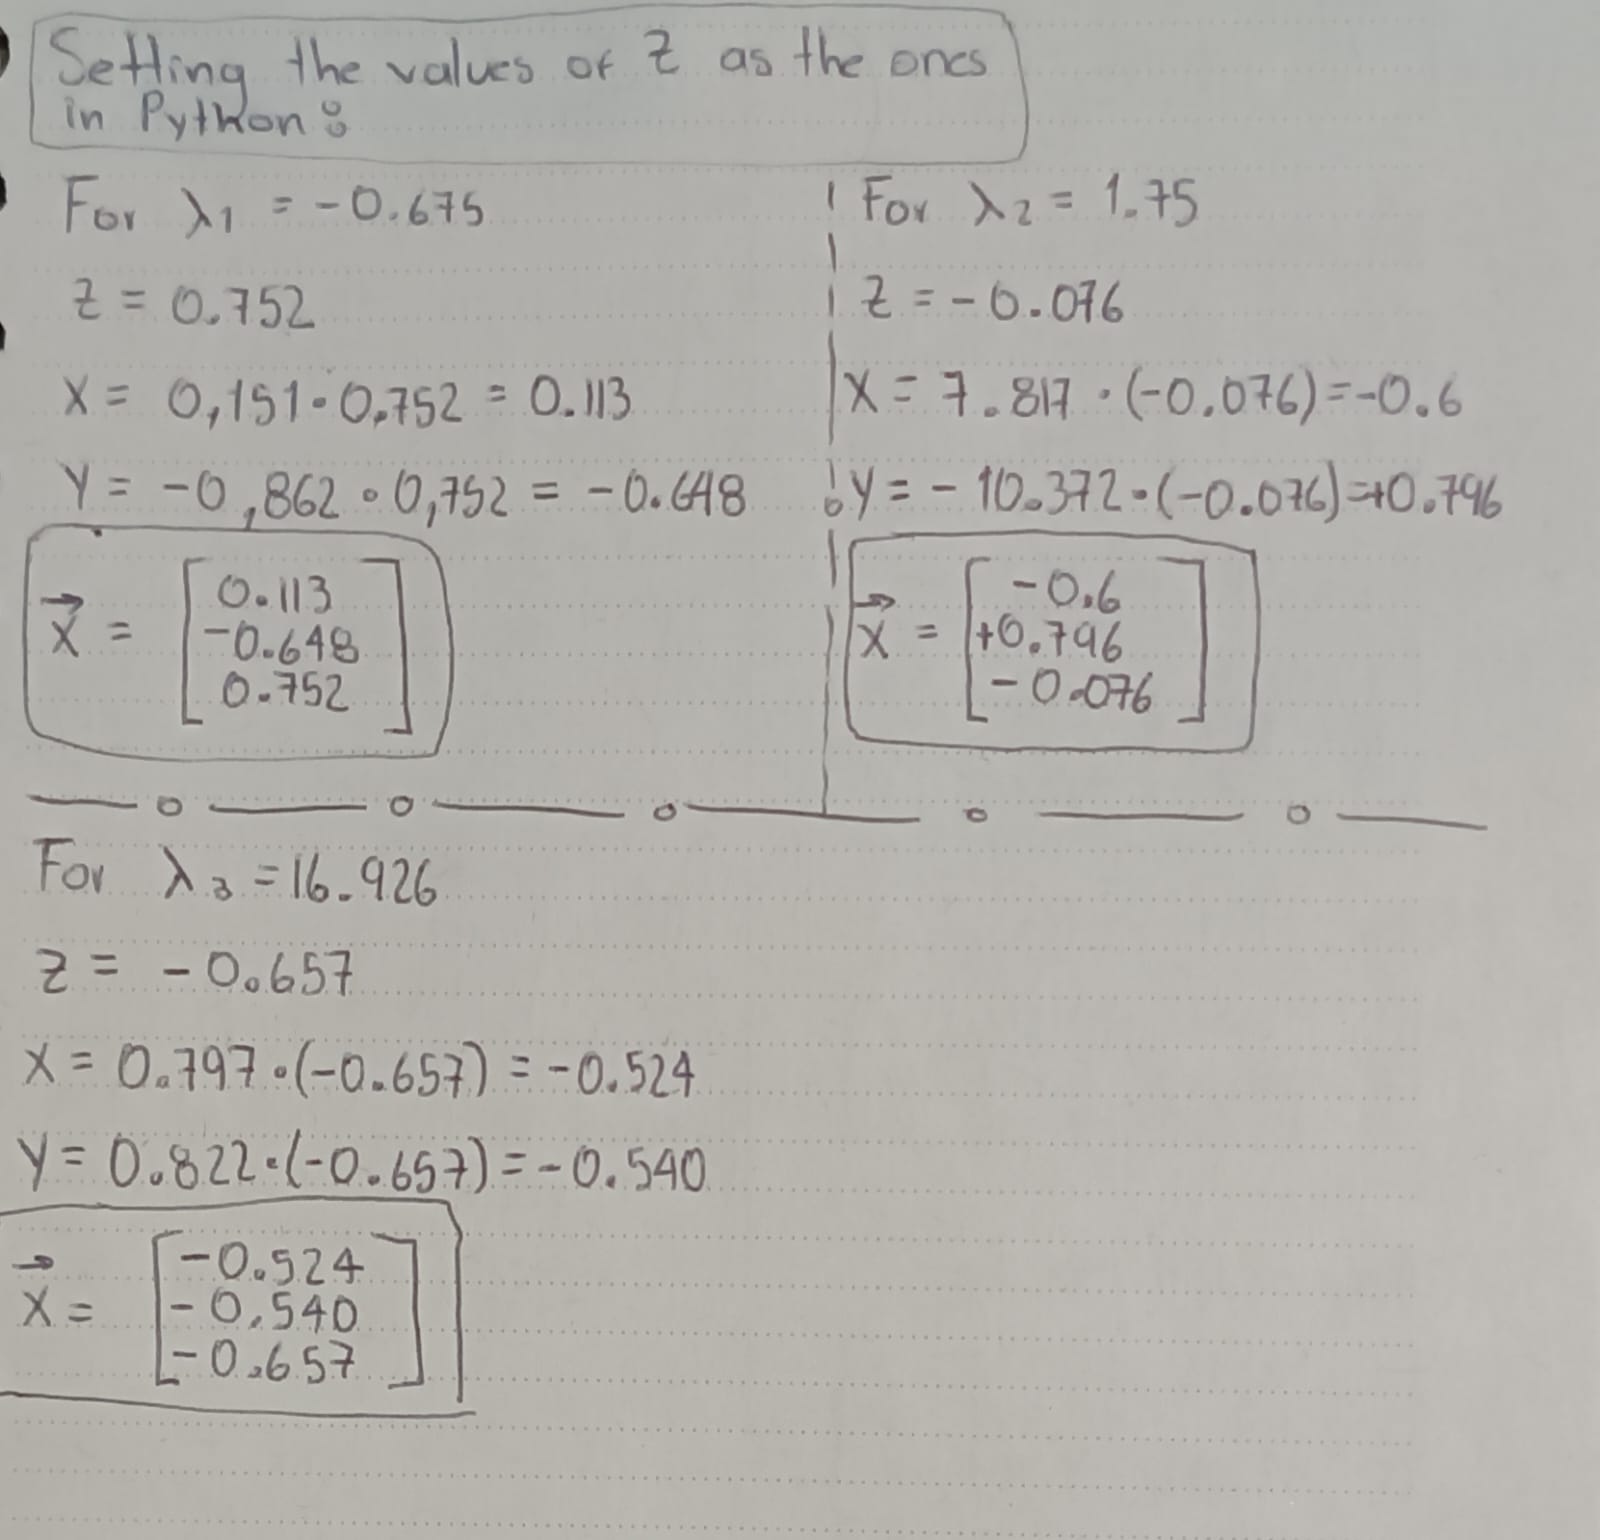 Setting the values of z as the ones
in Python:
For λ1 = -0.675
z = 0.752
x = 0,151·0,752 = 0.113
y = -0,862·0,752 = -0.648
x⃗ = [0.113
-0.648
0.752]
For λ2 = 1.75
z = -0.076
x = 7.817·(-0.076)=-0.6
y = -10.372·(-0.076)=+0.796
x⃗ = [-0.6
+0.796
-0.076]
For λ3 =16.926
z = -0.657
x = 0.797·(-0.657) = -0.524
y = 0.822·(-0.657)=-0.540
x⃗ = [-0.524
-0.540
-0.657]